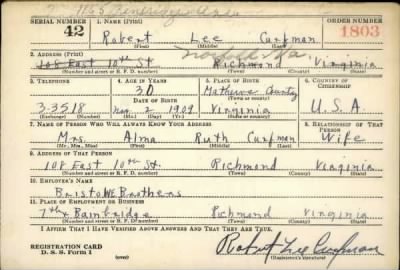 SERIAL NUMBER 1. NAME (Print) ORDER NUMBER
42 Robert Lee Curfman 1803
(First) (Middle) (Last)
2. ADDRESS (Print)
108 East 10th St Richmond Virginia
(Number and street or R. F. D. number) (Town) (County) (State)
3. TELEPHONE 4. AGE IN YEARS 5. PLACE OF BIRTH 6. COUNTRY OF CITIZENSHIP
30 Mathews County
DATE OF BIRTH (Town or county)
3-3518 Nov. 2 1909 Virginia U.S.A.
(Exchange) (Number) (Mo.) (Day) (Yr.) (State or country)
7. NAME OF PERSON WHO WILL ALWAYS KNOW YOUR ADDRESS 8. RELATIONSHIP OF THAT PERSON
Mrs Alma Ruth Curfman Wife
(Mr., Mrs., Miss) (First) (Middle) (Last)
9. ADDRESS OF THAT PERSON
108 East 10th St. Richmond Virginia
(Number and street or R. F. D. number) (Town) (County) (State)
10. EMPLOYER'S NAME
Bristow Brothers
11. PLACE OF EMPLOYMENT OR BUSINESS
7th & Bainbridge Richmond Virginia
(Number and street or R. F. D. number) (Town) (County) (State)
I AFFIRM THAT I HAVE VERIFIED ABOVE ANSWERS AND THAT THEY ARE TRUE.
REGISTRATION CARD Robert Lee Curfman
D. S. S. Form 1 (Registrant's signature)